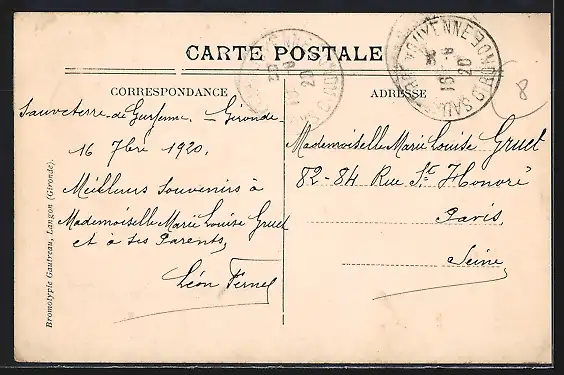 CARTE POSTALE
CORRESPONDANCE
Sauveterre-de-Guyenne. - Gironde.
16 7bre 1920.
Meilleurs souvenirs à
Mademoiselle Marie Louise Gruet
et à ses Parents,
Léon
ADRESSE
Mademoiselle Marie Louise Gruet
82-84 Rue St Honoré
Paris,
Seine,
8
Bromotypie Gautreau, Langon (Gironde).